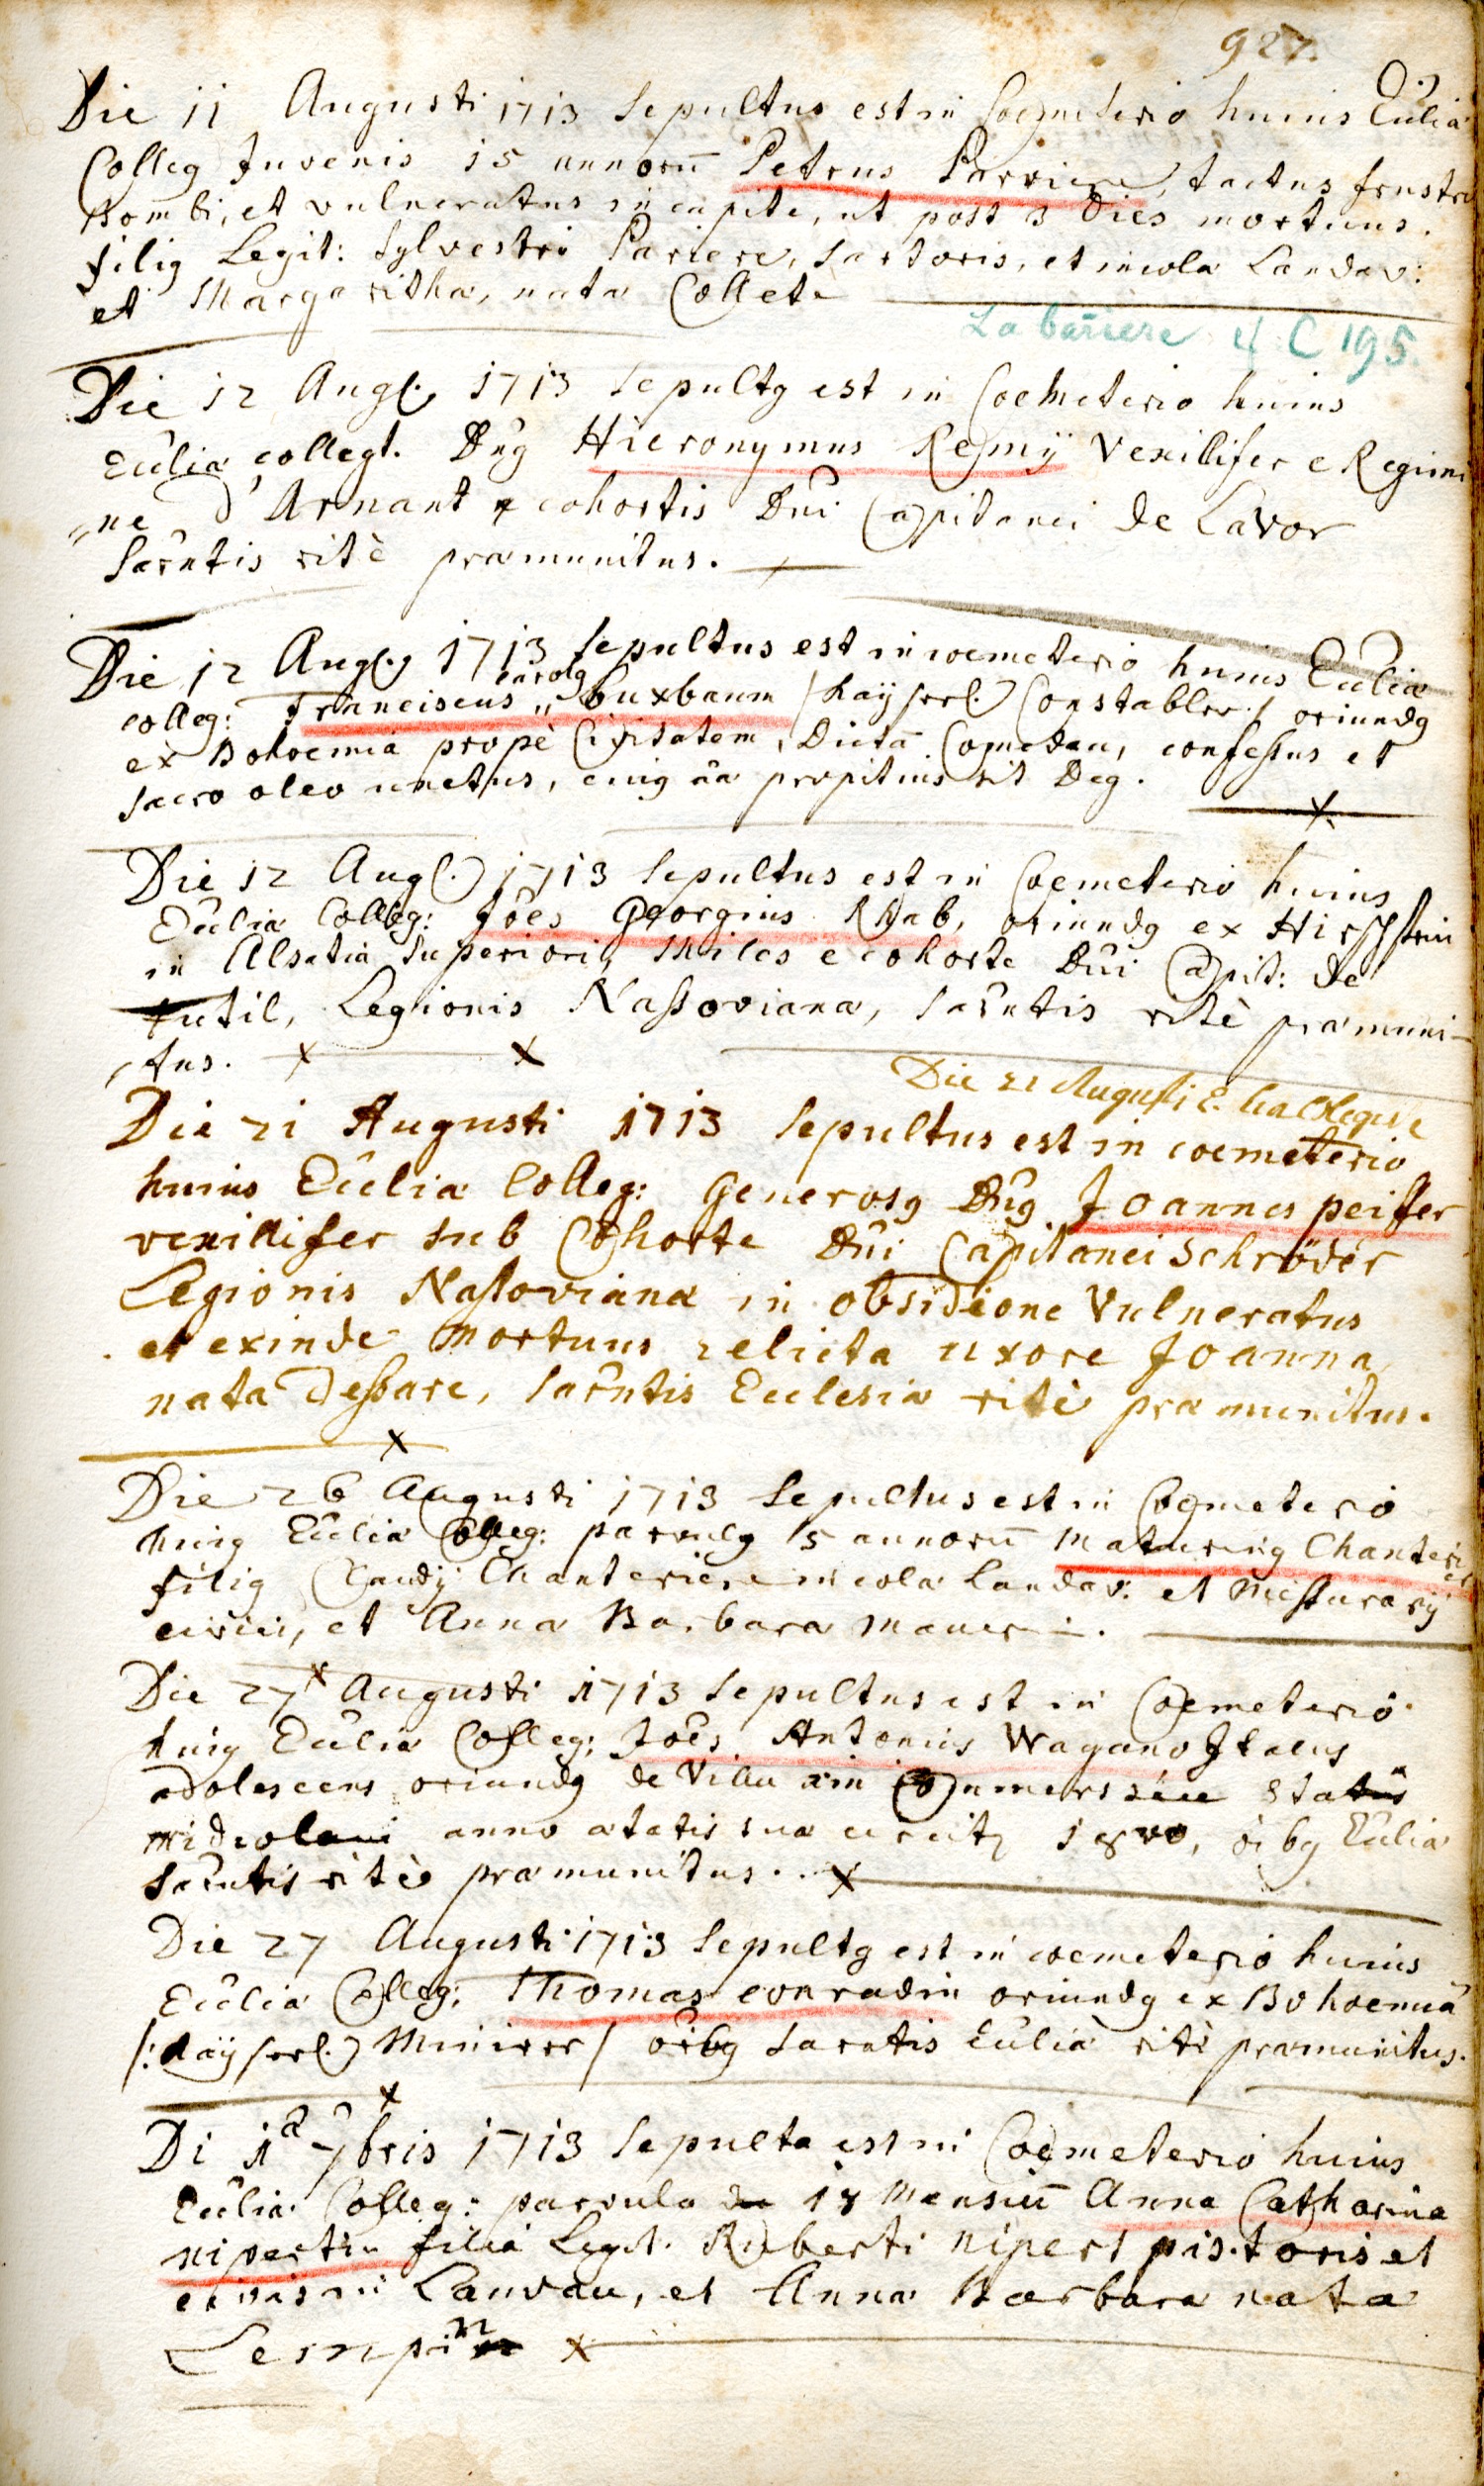 927.
Die 11 Augusti 1713 Sepultus est in Coemeterio huius Ecclia
Colleg Juvenis 15 annorū Petrus Parriere, tactus frustro
Bombi, et vulneratus in capite, ut post 3 dies mortuus.
filig Legit: Sylvestri Pariere, Sartoris, et incola Landav:
et Margaritha, nata Collete
La bariere 4 C 195.
Die 12 Aug. 1713 Sepultg est in Coemeterio huius
Ecclia collegt. Dng Hieronymus Remÿ Vexillifer e Regimi
"ne D'Arnant e cohortis Dni Capitanei de Lavor
Sacntis ritè praemunitus.
Die 12 Aug. 1713 Sepultus est in coemeterio huius Ecclia
carolg
colleg: Franciscus " buxbaum /kaÿserl. Constabler/ oriundg
ex Bohoemia propè Civitatem, Dictā Comedau, confessus et
sacro oleo unctus, cuig āa propitius sit Deg.
Die 12 Aug. 1713 Sepultus est in Coemeterio huius
Ecclia Colleg: Joes Georgius Rhab, oriundg ex Hirschstein
in Alsatia Superiori, Miles e cohorte Dni Capit: de
tutil, Legionis Nassoviana, Sacntis ritè praemuni-
tus.
Die 21 Augusti
Die 21 Augusti 1713 Sepultus est in coemeterio
huius Ecclia Colleg: Generosg Dng Joannes peifer
vexillifer sub Cohorte Dni Capitanei Schröder
Legionis Nassoviana in obsidione Vulneratus
et exinde mortuus relicta uxore Joanna
nata Dessare, Sacntis Ecclesia ritè praemunitus.
Die 26 Augusti 1713 Sepultus est in Coemeterio
huig Ecclia Colleg: parvulg 5 annorū Maturing Chanterie
filig Claudij Chanteriere incola Landav: et Messurarij
civici, et Anna Barbara Maueri.
Die 27 Augusti 1713 Sepultus est in Coemeterio
huig Ecclia Colleg: Joes Antonius Wagano Italus
adolescens oriundg de Villa Status
anno aetatis sua circitz 18vo, oibg Ecclia
Sacntis ritè praemunitus.
Die 27 Augusti 1713 Sepultg est in coemeterio huius
Ecclia Colleg: Thomas conradin oriundg ex Bohoemiâ
/: kaÿserl. Minirer/ oibg Sacntis Ecclia ritè praemunitus.
Di 1a 7bris 1713 Sepulta est in Coemeterio huius
Ecclia Colleg: parvula 18 Mensiū Anna Catharina
nipertin filia Legit. Ruberti Nipert pistoris et
civis in Landau, et Anna Barbara nata
Lempin